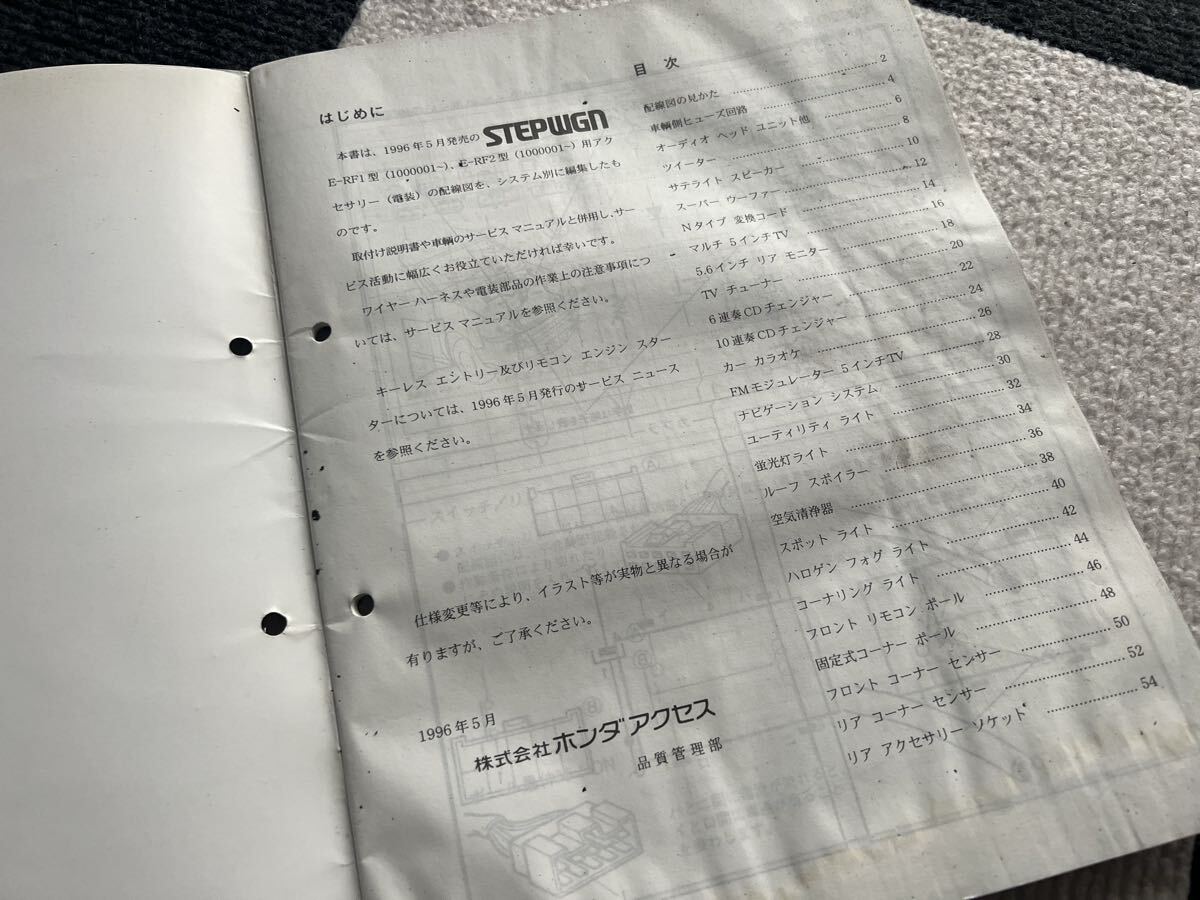 はじめに
本書は、1996年5月発売の STEPWGN
E-RF1型 (1000001~)、E-RF2型 (1000001~) 用アク
セサリー (電装) の配線図を、システム別に編集したも
のです。
取付け説明書や車輌のサービス マニュアルと併用し、サー
ビス活動に幅広くお役立ていただければ幸いです。
ワイヤー ハーネスや電装部品の作業上の注意事項につ
いては、サービス マニュアルを参照ください。
キーレス エントリー及びリモコン エンジン スター
ターについては、1996年5月発行のサービス ニュース
を参照ください。
仕様変更等により、イラスト等が実物と異なる場合が
有りますが、ご了承ください。
1996年5月
株式会社ホンダアクセス
品質管理部
目 次
配線図の見かた 2
車輌側ヒューズ回路 4
オーディオ ヘッド ユニット他 6
ツイーター 8
サテライト スピーカー 10
スーパー ウーファー 12
Nタイプ 変換コード 14
マルチ 5インチTV 16
5.6インチ リア モニター 18
TV チューナー 20
6連奏CDチェンジャー 22
10連奏CDチェンジャー 24
カー カラオケ 26
FMモジュレーター 5インチTV 28
ナビゲーション システム 30
ユーティリティ ライト 32
蛍光灯ライト 34
ルーフ スポイラー 36
空気清浄器 38
スポット ライト 40
ハロゲン フォグ ライト 42
コーナリング ライト 44
フロント リモコン ポール 46
固定式コーナー ポール 48
フロント コーナー センサー 50
リア コーナー センサー 52
リア アクセサリー ソケット 54